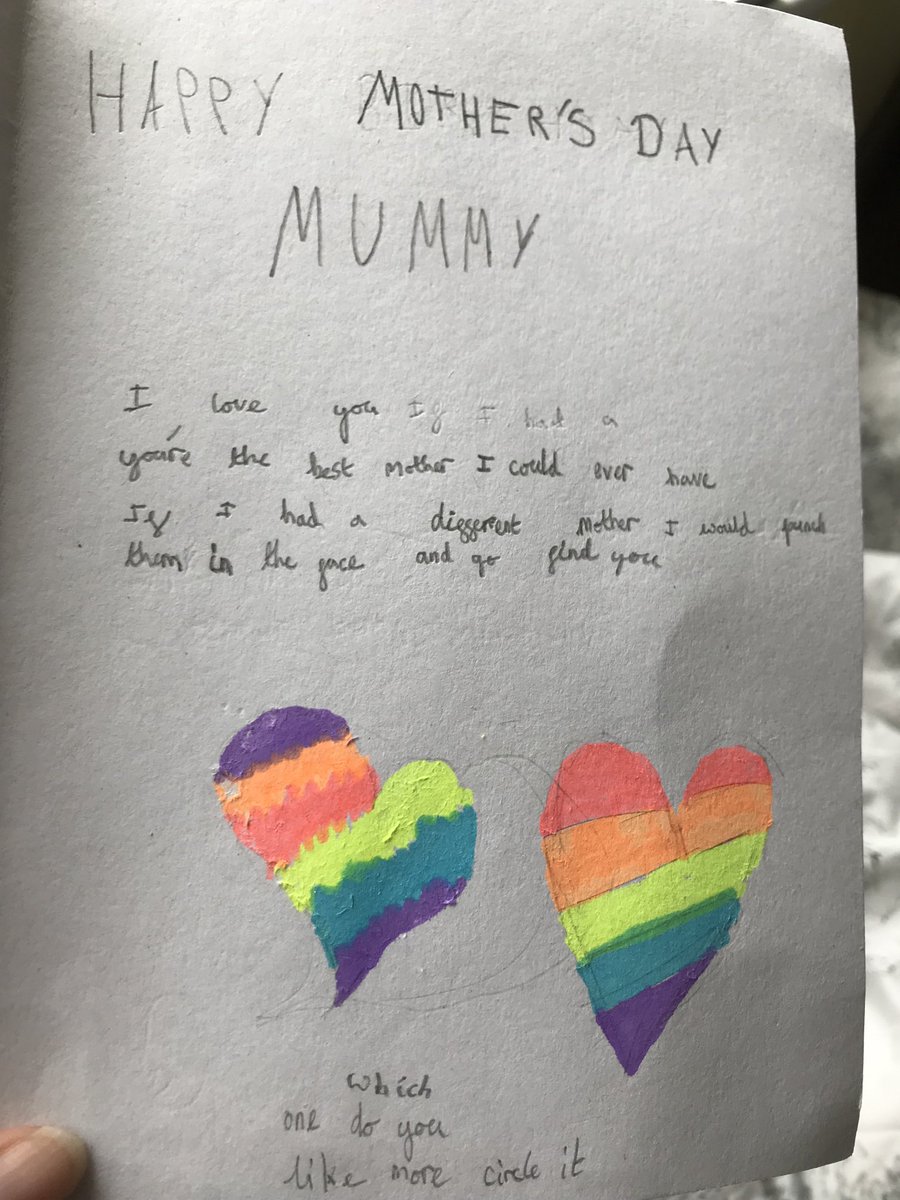 HAPPY MOTHER'S DAY
MUMMY
I love you If I had a
you're the best mother I could ever have
If I had a different mother I would punch
them in the face and go find you
which
one do you
like more circle it